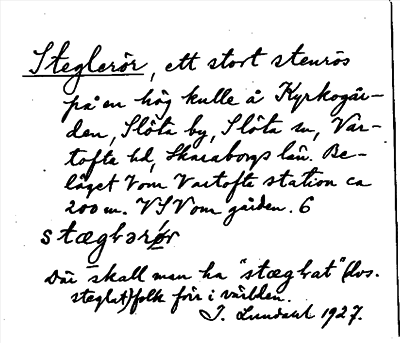 Steglerör, ett stort stenrös
på en hög kulle å Kyrkogår-
den, Slöta by, Slöta sn, Var-
tofta hd, Skaraborgs län. Be-
läget Vom Vartofta station ca
200 m. VSV om gården. 6
stægLərǿr
Där skall man ha "stægLat" (dvs.
steglat) folk förr i världen.
J. Lundahl 1927.